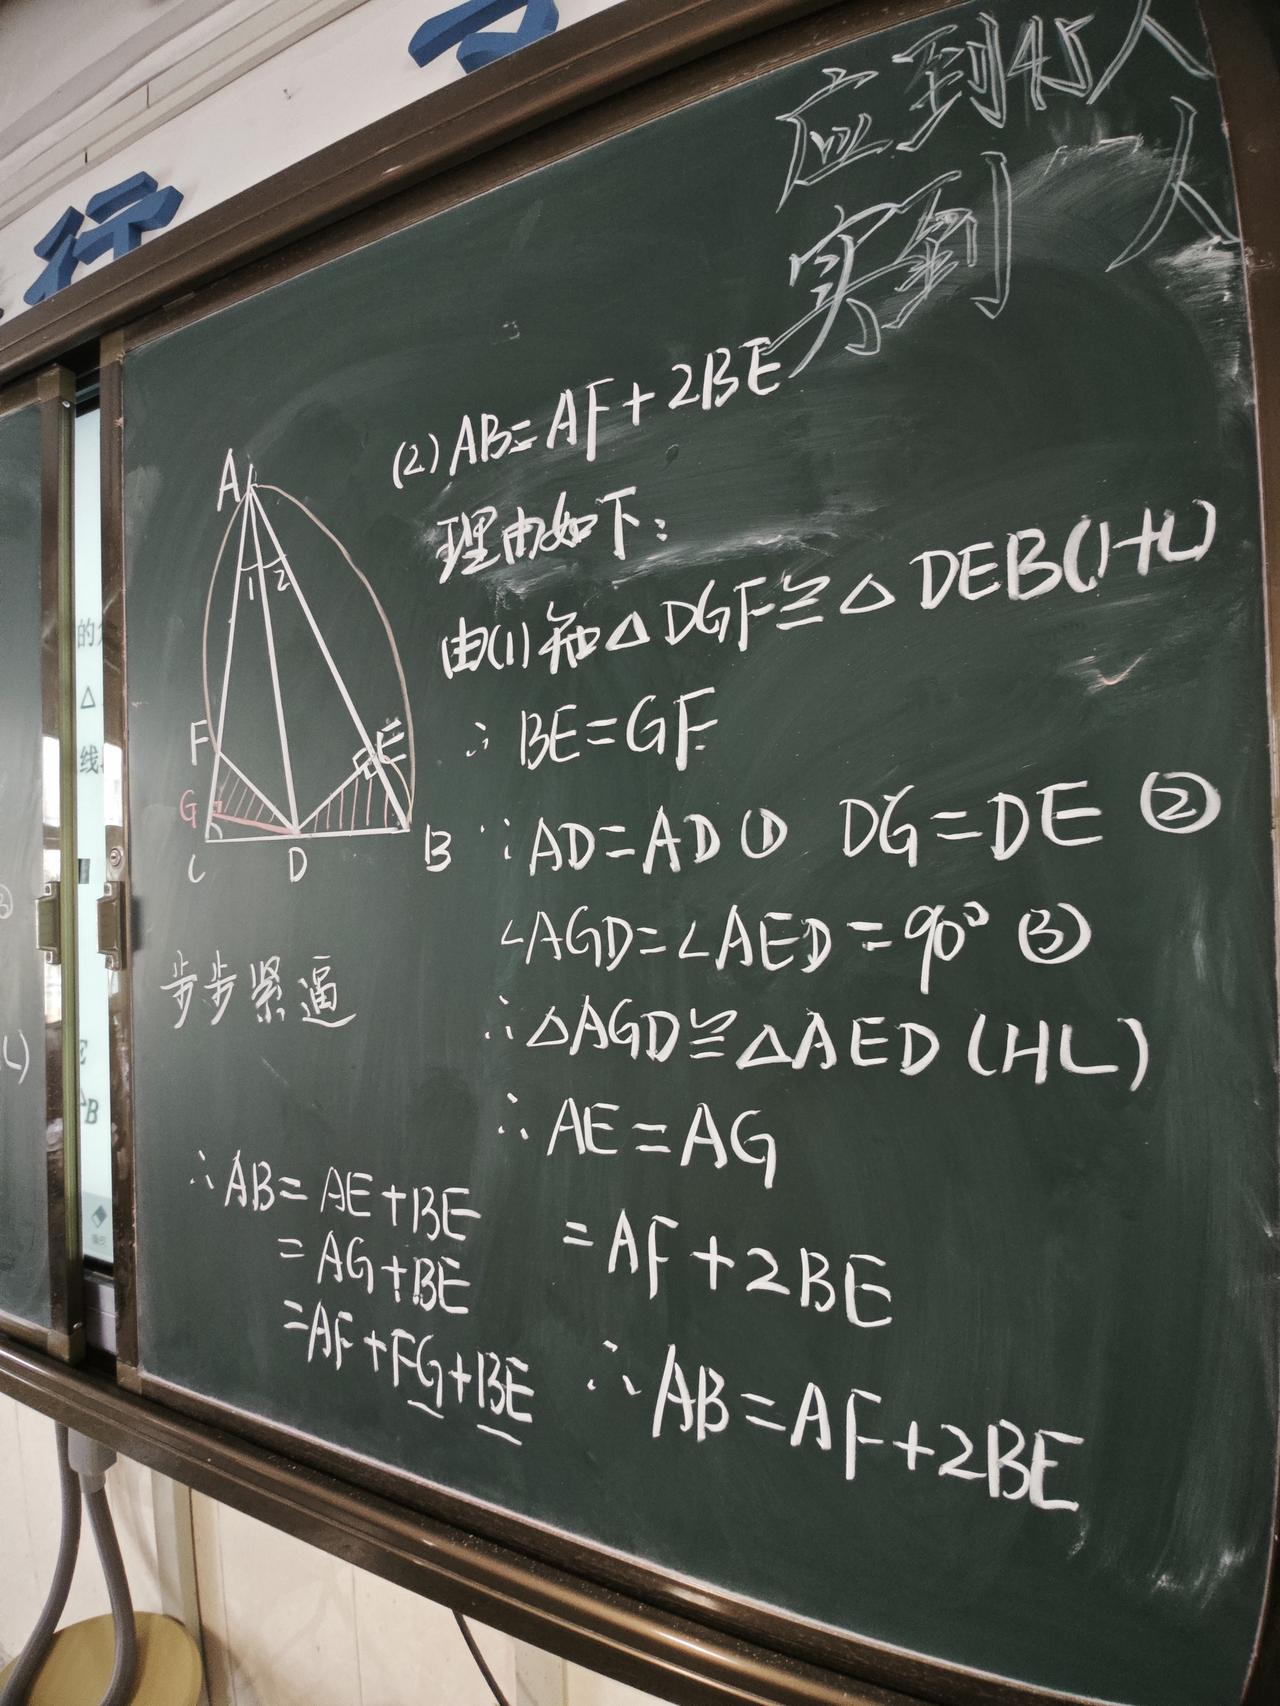 行
应到45人
实到 人
(2) AB=AF+2BE
理由如下:
由(1)知△DGF≌△DEB(HL)
∴ BE=GF
∵ AD=AD ① DG=DE ②
∠AGD=∠AED=90° ③
∴ △AGD≌△AED (HL)
∴ AE=AG
A
1 2
F E
G
C D B
步步紧逼
∴ AB= AE+BE
= AG+BE
=AF+FG+BE
=AF+2BE
∴ AB=AF+2BE
的
△
线
L)
E
B